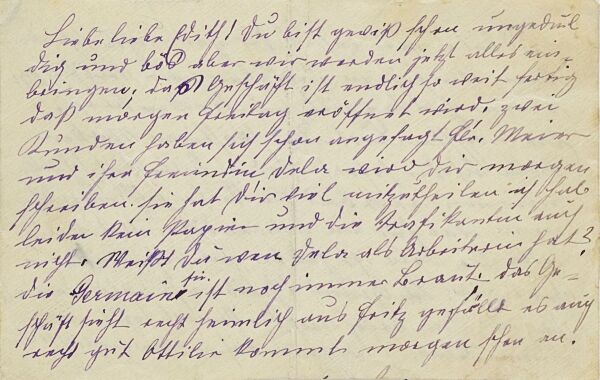 Liebe liebe Edith! Du bist gewiß schon ungedul
dig und bös aber wir werden jetzt alles ein-
bringen, das Geschäft ist endlich so weit fertig
daß morgen Freitag eröffnet wird. zwei
Kunden haben sich schon angesagt Fr. Meier
und ihre Freundin Dela wird Dir morgen
schreiben. sie hat Dir viel mitzutheilen ich hab
leider kein Papier und die Trafikantin auch
nicht. Weißt Du wen Dela als Arbeiterin hat?
die Germaine für ist noch immer Braut. das Ge-
schäft sieht recht heimlich aus Fritz gefällt es auch
recht gut Ottilie kommt morgen schon an.